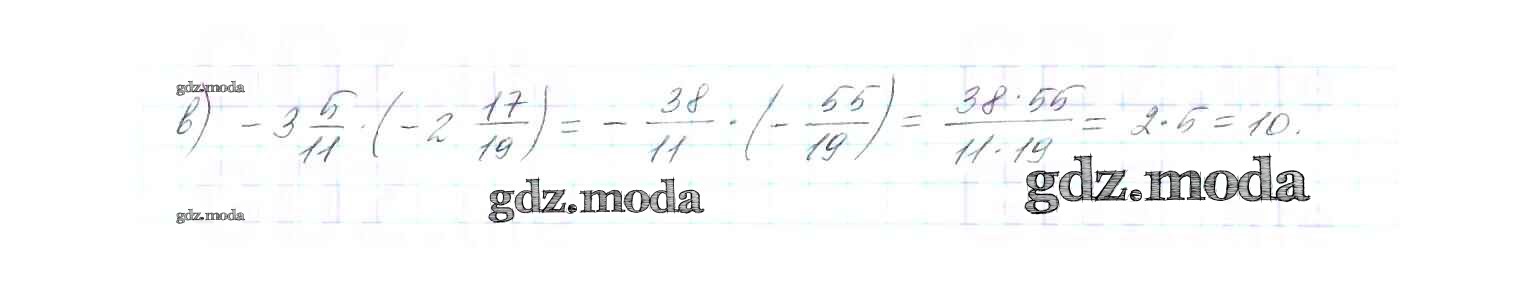 gdz.moda
в) - 3 5/11 · (- 2 17/19) = - 38/11 · (- 55/19) = 38·55/11·19 = 2·5 = 10.
gdz.moda gdz.moda
gdz.moda